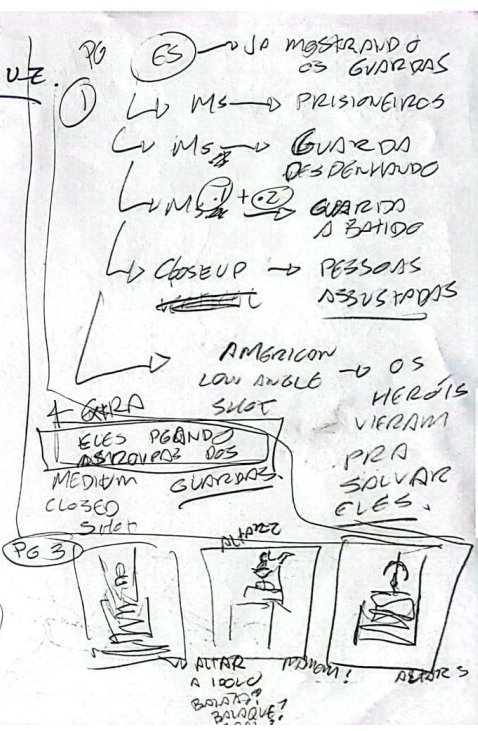 UZ.
PG
ES → JÁ MOSTRANDO
OS GUARDAS
1
MS → PRISIONEIROS
MS → GUARDA
DESDENHANDO
MS .1 + .2 → GUARDA
ABATIDO
CLOSEUP → PESSOAS
ASSUSTADAS
AMERICAN
LOW ANGLE → OS
SHOT HERÓIS
VIERAM
PRA
SALVAR
ELES.
+ EXTRA
ELES PEGANDO
AS ROUPAS DOS
GUARDAS.
MEDIUM
CLOSED
SHOT
PG 3
ALTAR 2
ALTAR
A IDOLO
ALTAR 3